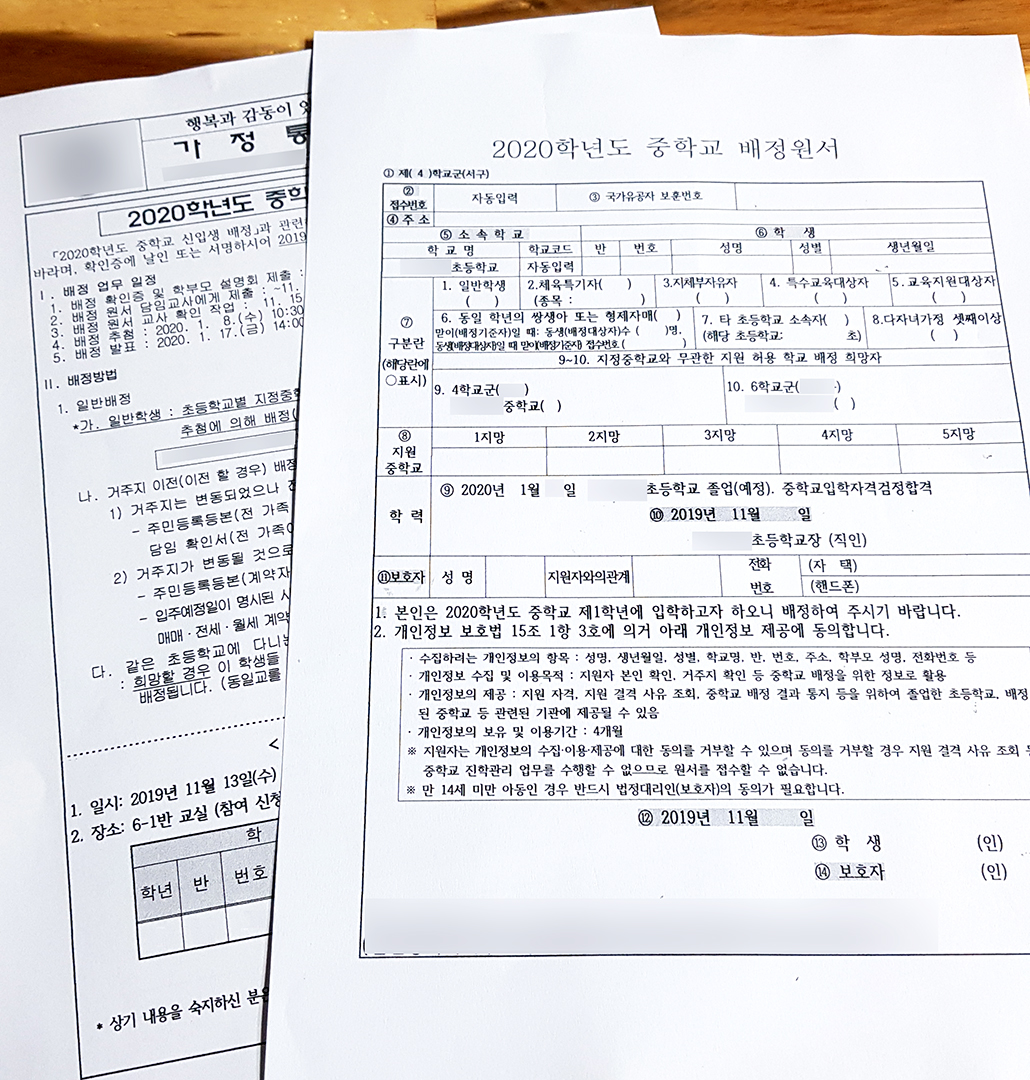 행복과 감동이
가 정 통
2020학년도 중학
「2020학년도 중학교 신입생 배정」과 관련
바라며, 확인증에 날인 또는 서명하시어 2019
Ⅰ. 배정 업무 일정
1. 배정 확인증 및 학부모 설명회 제출 :
2. 배정 원서 담임교사에게 제출 : ~11.
3. 배정 원서 교사 확인 작업 : 11. 15.
4. 배정 추첨 : 2020. 1. 8.(수) 10:30
5. 배정 발표 : 2020. 1. 17.(금) 14:00
Ⅱ. 배정방법
1. 일반배정
*가. 일반학생 : 초등학교별 지정중학
추첨에 의해 배정(
나. 거주지 이전(이전 할 경우) 배정
1) 거주지는 변동되었으나 전
- 주민등록등본(전 가족
담임 확인서(전 가족이
2) 거주지가 변동될 것으로
- 주민등록등본(계약자
- 입주예정일이 명시된 서
매매·전세·월세 계약
다. 같은 초등학교에 다니는
: 희망할 경우 이 학생들
배정됩니다. (동일교를
<
1. 일시: 2019년 11월 13일(수)
2. 장소: 6-1반 교실 (참여 신청
학
학년 반 번호
* 상기 내용을 숙지하신 분은
2020학년도 중학교 배정원서
① 제( 4 )학교군(서구)
② 접수번호 자동입력 ③ 국가유공자 보훈번호
④ 주 소
⑤ 소 속 학 교 ⑥ 학 생
학 교 명 학교코드 반 번호 성명 성별 생년월일
초등학교 자동입력
1. 일반학생 ( ) 2.체육특기자( ) (종목 : ) 3.지체부자유자 ( ) 4. 특수교육대상자 ( ) 5.교육지원대상자 ( )
⑦ 구분란 (해당란에 ○표시)
6. 동일 학년의 쌍생아 또는 형제자매( ) 7. 타 초등학교 소속자( ) 8.다자녀가정 셋째이상
맏이(배정기준자)일 때: 동생(배정대상자)수 ( )명, (해당 초등학교: 초) ( )
동생(배정대상자)일 때 맏이(배정기준자) 접수번호 ( )
9~10. 지정중학교와 무관한 지원 허용 학교 배정 희망자
9. 4학교군( ) 10. 6학교군( )
중학교( ) ( )
⑧ 지원 중학교 1지망 2지망 3지망 4지망 5지망
학 력 ⑨ 2020년 1월 일 초등학교 졸업(예정). 중학교입학자격검정합격
⑩ 2019년 11월 일
초등학교장 (직인)
⑪보호자 성 명 지원자와의관계 전화 번호 (자 택)
(핸드폰)
1. 본인은 2020학년도 중학교 제1학년에 입학하고자 하오니 배정하여 주시기 바랍니다.
2. 개인정보 보호법 15조 1항 3호에 의거 아래 개인정보 제공에 동의합니다.
· 수집하려는 개인정보의 항목 : 성명, 생년월일, 성별, 학교명, 반, 번호, 주소, 학부모 성명, 전화번호 등
· 개인정보 수집 및 이용목적 : 지원자 본인 확인, 거주지 확인 등 중학교 배정을 위한 정보로 활용
· 개인정보의 제공 : 지원 자격, 지원 결격 사유 조회, 중학교 배정 결과 통지 등을 위하여 졸업한 초등학교, 배정
된 중학교 등 관련된 기관에 제공될 수 있음
· 개인정보의 보유 및 이용기간 : 4개월
※ 지원자는 개인정보의 수집·이용·제공에 대한 동의를 거부할 수 있으며 동의를 거부할 경우 지원 결격 사유 조회
중학교 진학관리 업무를 수행할 수 없으므로 원서를 접수할 수 없습니다.
※ 만 14세 미만 아동인 경우 반드시 법정대리인(보호자)의 동의가 필요합니다.
⑫ 2019년 11월 일
⑬ 학 생 (인)
⑭ 보호자 (인)